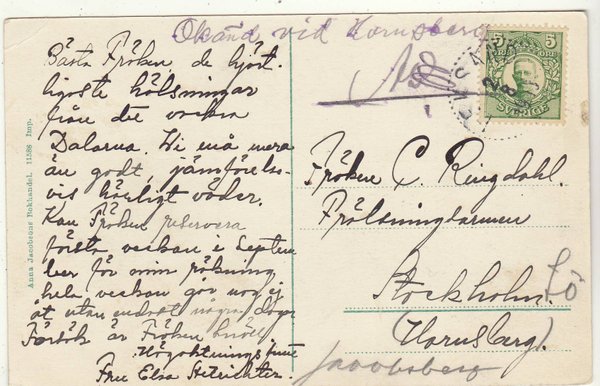 Okänd vid Hornsberg
Bästa Fröken de hjärt-
ligaste hälsningar
från det vackra
Dalarna. Vi må mera
än godt, jämförelse-
vis härligt väder.
Kan Fröken reservera
första veckan i Septem
ber för min räkning
hela veckan gör nog ej
åt utan endast några dagar
Försök är Fröken snäll
Högaktningsfullt
Fru Elsa
Anna Jacobsons Bokhandel. 11588 Imp.
5 5
ÖRE ÖRE
SVERIGE
Fröken C. Ringdahl.
Frälsningsarmen
Stockholm.
(Hornsberg).
Jacobsberg